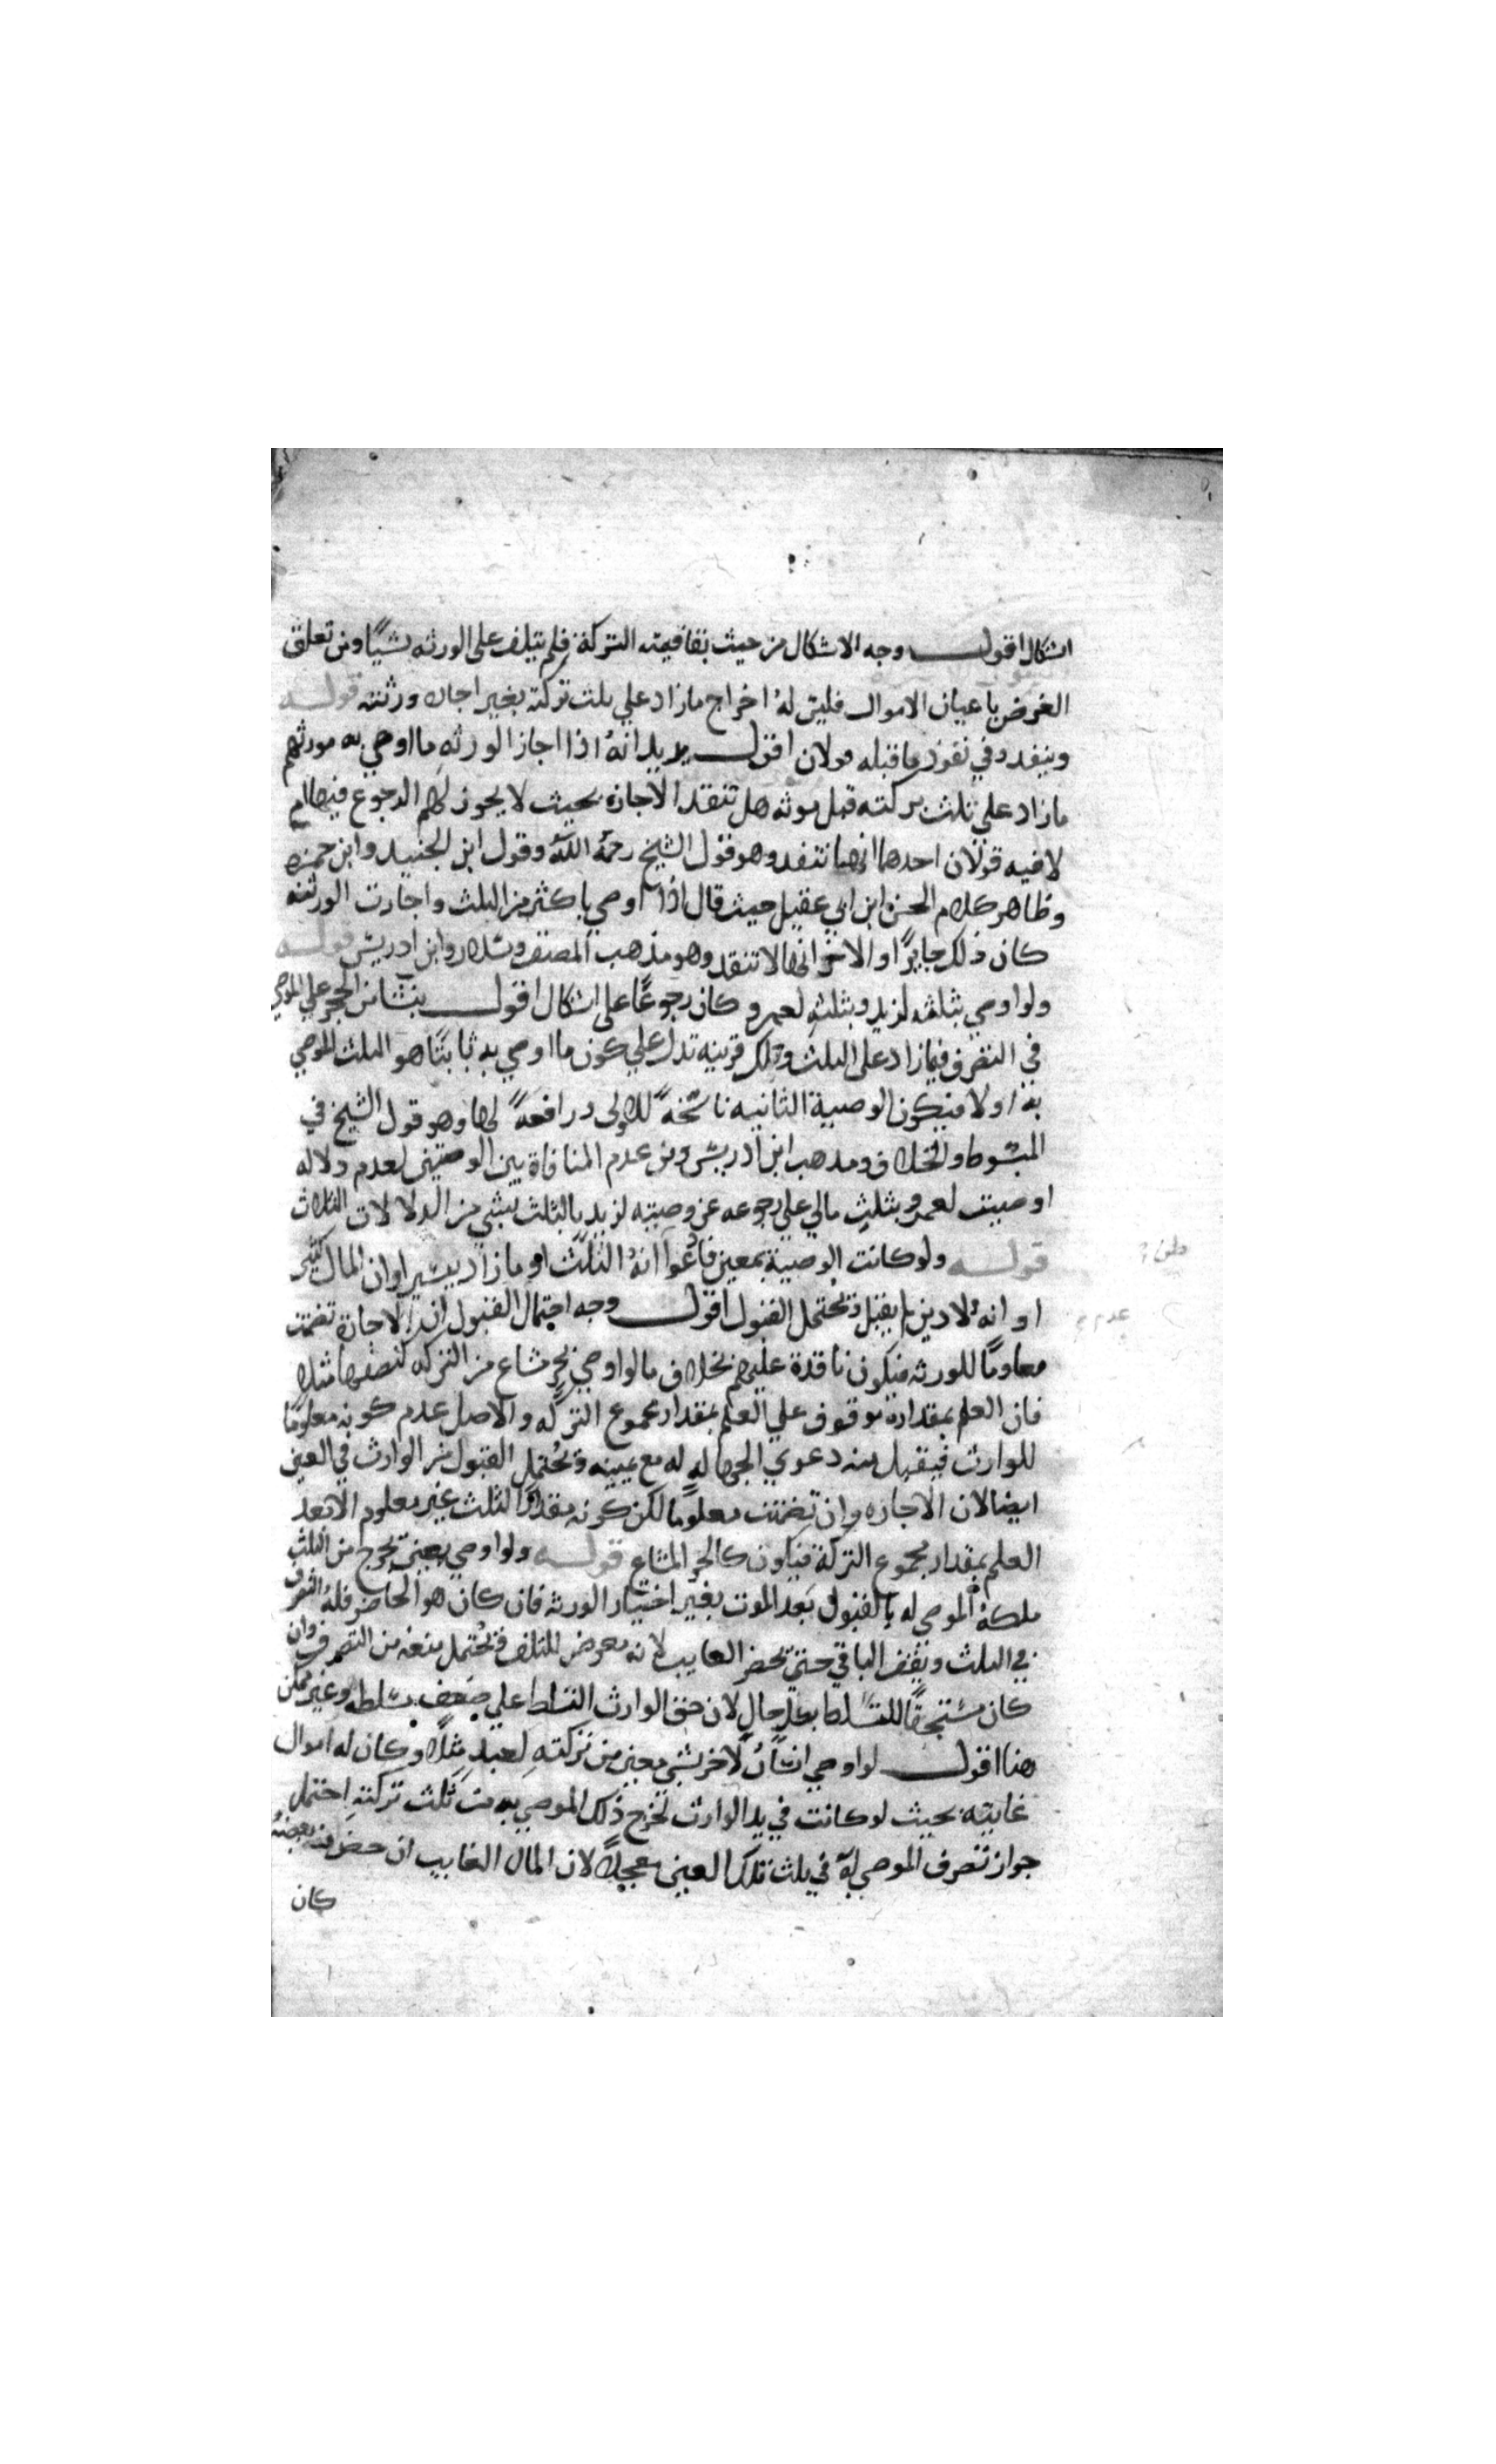 اشكال اقول وجه الاشكال من حيث بقا قيمته التركة فلم يتلف على الورثه شيًا ومن تعلق
الغرض باعيان الاموال فليس له اخراج مازاد علي ثلث تركته بغير اجازه ورثته قوله
وينفد وفي نفوذ ما قبله قولان اقول يريد انهُ اذا اجاز الورثه ما اوصي به مورثهم
مازاد علي ثلث تركته قبل موته هل تنفد الاجازه بحيث لا يجوز لهم الرجوع فيها ام
لا فيه قولان احدهما انها تنفد وهو قول الشيخ رحمهُ اللهُ وقول ابن الجنيد وابن حمزه
وظاهر كلام الحسن ابن ابي عقيل حيث قال اذا اوصي باكثر من الثلث واجازت الورثه
كان ذلك جايزًا والاخر انها لا تنفد وهو مذهب المصنف وسلار وابن ادريس قوله
ولو اوصي بثلثه لزيد وبثلثه لعمرو كان رجوعًا على اشكال اقول ينشا من الحجر علي الموصي
في التصرف فيمازاد على الثلث وتلك قرينه تدل علي كون ما اوصي به ثانيًا هو الثلث الموصي
به اولا فيكون الوصية الثانيه ناسخةً للاولى ورافعةً لها وهو قول الشيخ في
المبسوط والخلاف ومذهب ابن ادريس ومن عدم المنافاة بين الوصيتين لعدم دلاله
اوصيت لعمرو بثلث مالي علي رجوعه عن وصيته لزيد بالثلث بشي من الدلالات الثلاث
قوله ولو كانت الوصية بمعين فادعوا انهُ الثلث او مازاد بيسير او ان المال كثير
او انه لا دين لم يقبل ويحتمل القبول اقول وجه احتمال القبول ان الاجازة تضمنت
معلومًا للورثه فيكون نافدة عليهم بخلاف مالو اوصي بجز مشاع من التركه كنصفها مثلا
فان العلم بمقداره موقوف علي العلم بمقدار مجموع التركه والاصل عدم كونه معلومًا
للوارث فيقبل منه دعوي الجهاله له مع يمينه ويحتمل القبول من الوارث في العين
ايضا لان الاجازه وان تضمنت معلومًا لكن كونه مقدار الثلث غير معلوم الا بعد
العلم بمقدار مجموع التركة فيكون كالجز المشاع قوله ولو اوصي بعين تخرج من الثلث
ملكهُ الموصي له بالقبول بعد الموت بغير اختيار الورثه فان كان هو الحاضر فلهُ التصرف
في الثلث ويقف الباقي حتي يحضر الغايب لانه معرض للتلف ويحتمل منعه من التصرف وان
كان مستحقًا للتسلط بكل حال لان حق الوارث التسلط علي ضعف تسلطه وغير ممكن
هنا اقول لو اوصي انسانُ لاخر بشي معين من تركته لعبد مثلا وكان له اموال
غايبه بحيث لو كانت في يد الوارث لخرج ذلك الموصي به من ثلث تركته احتمل
جواز تصرف الموصي له في ثلث تلك العين معجلاً لان المال الغايب ان حضر منه بعضهُ
كان
عدم